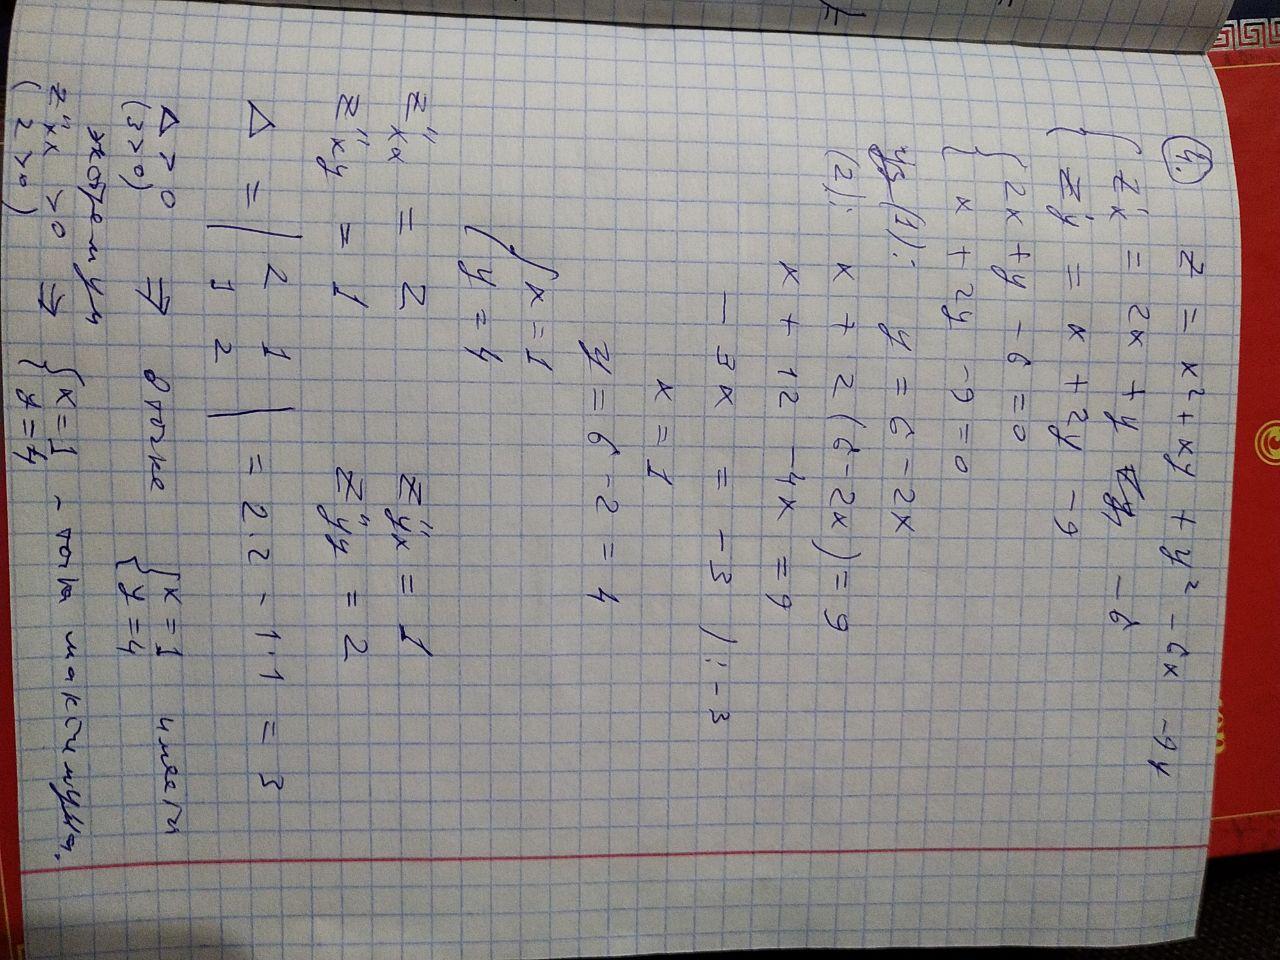 4. z = x² + xy + y² - 6x - 9y
z'x = 2x + y - 6
z'y = x + 2y - 9
2x + y - 6 = 0
x + 2y - 9 = 0
уз (1): y = 6 - 2x
(2): x + 2(6 - 2x) = 9
x + 12 - 4x = 9
- 3x = - 3 ) : - 3
x = 1
y = 6 - 2 = 4
{ x = 1
y = 4
z''xx = 2 z''yx = 1
z''xy = 1 z''yy = 2
Δ = | 2 1 | = 2·2 - 1·1 = 3
1 2
Δ > 0 ⇒ в точке { x = 1 имеем
(3 > 0) y = 4
экстремум
z''xx > 0 ⇒ { x = 1 - точка максимума.
(2 > 0) y = 4